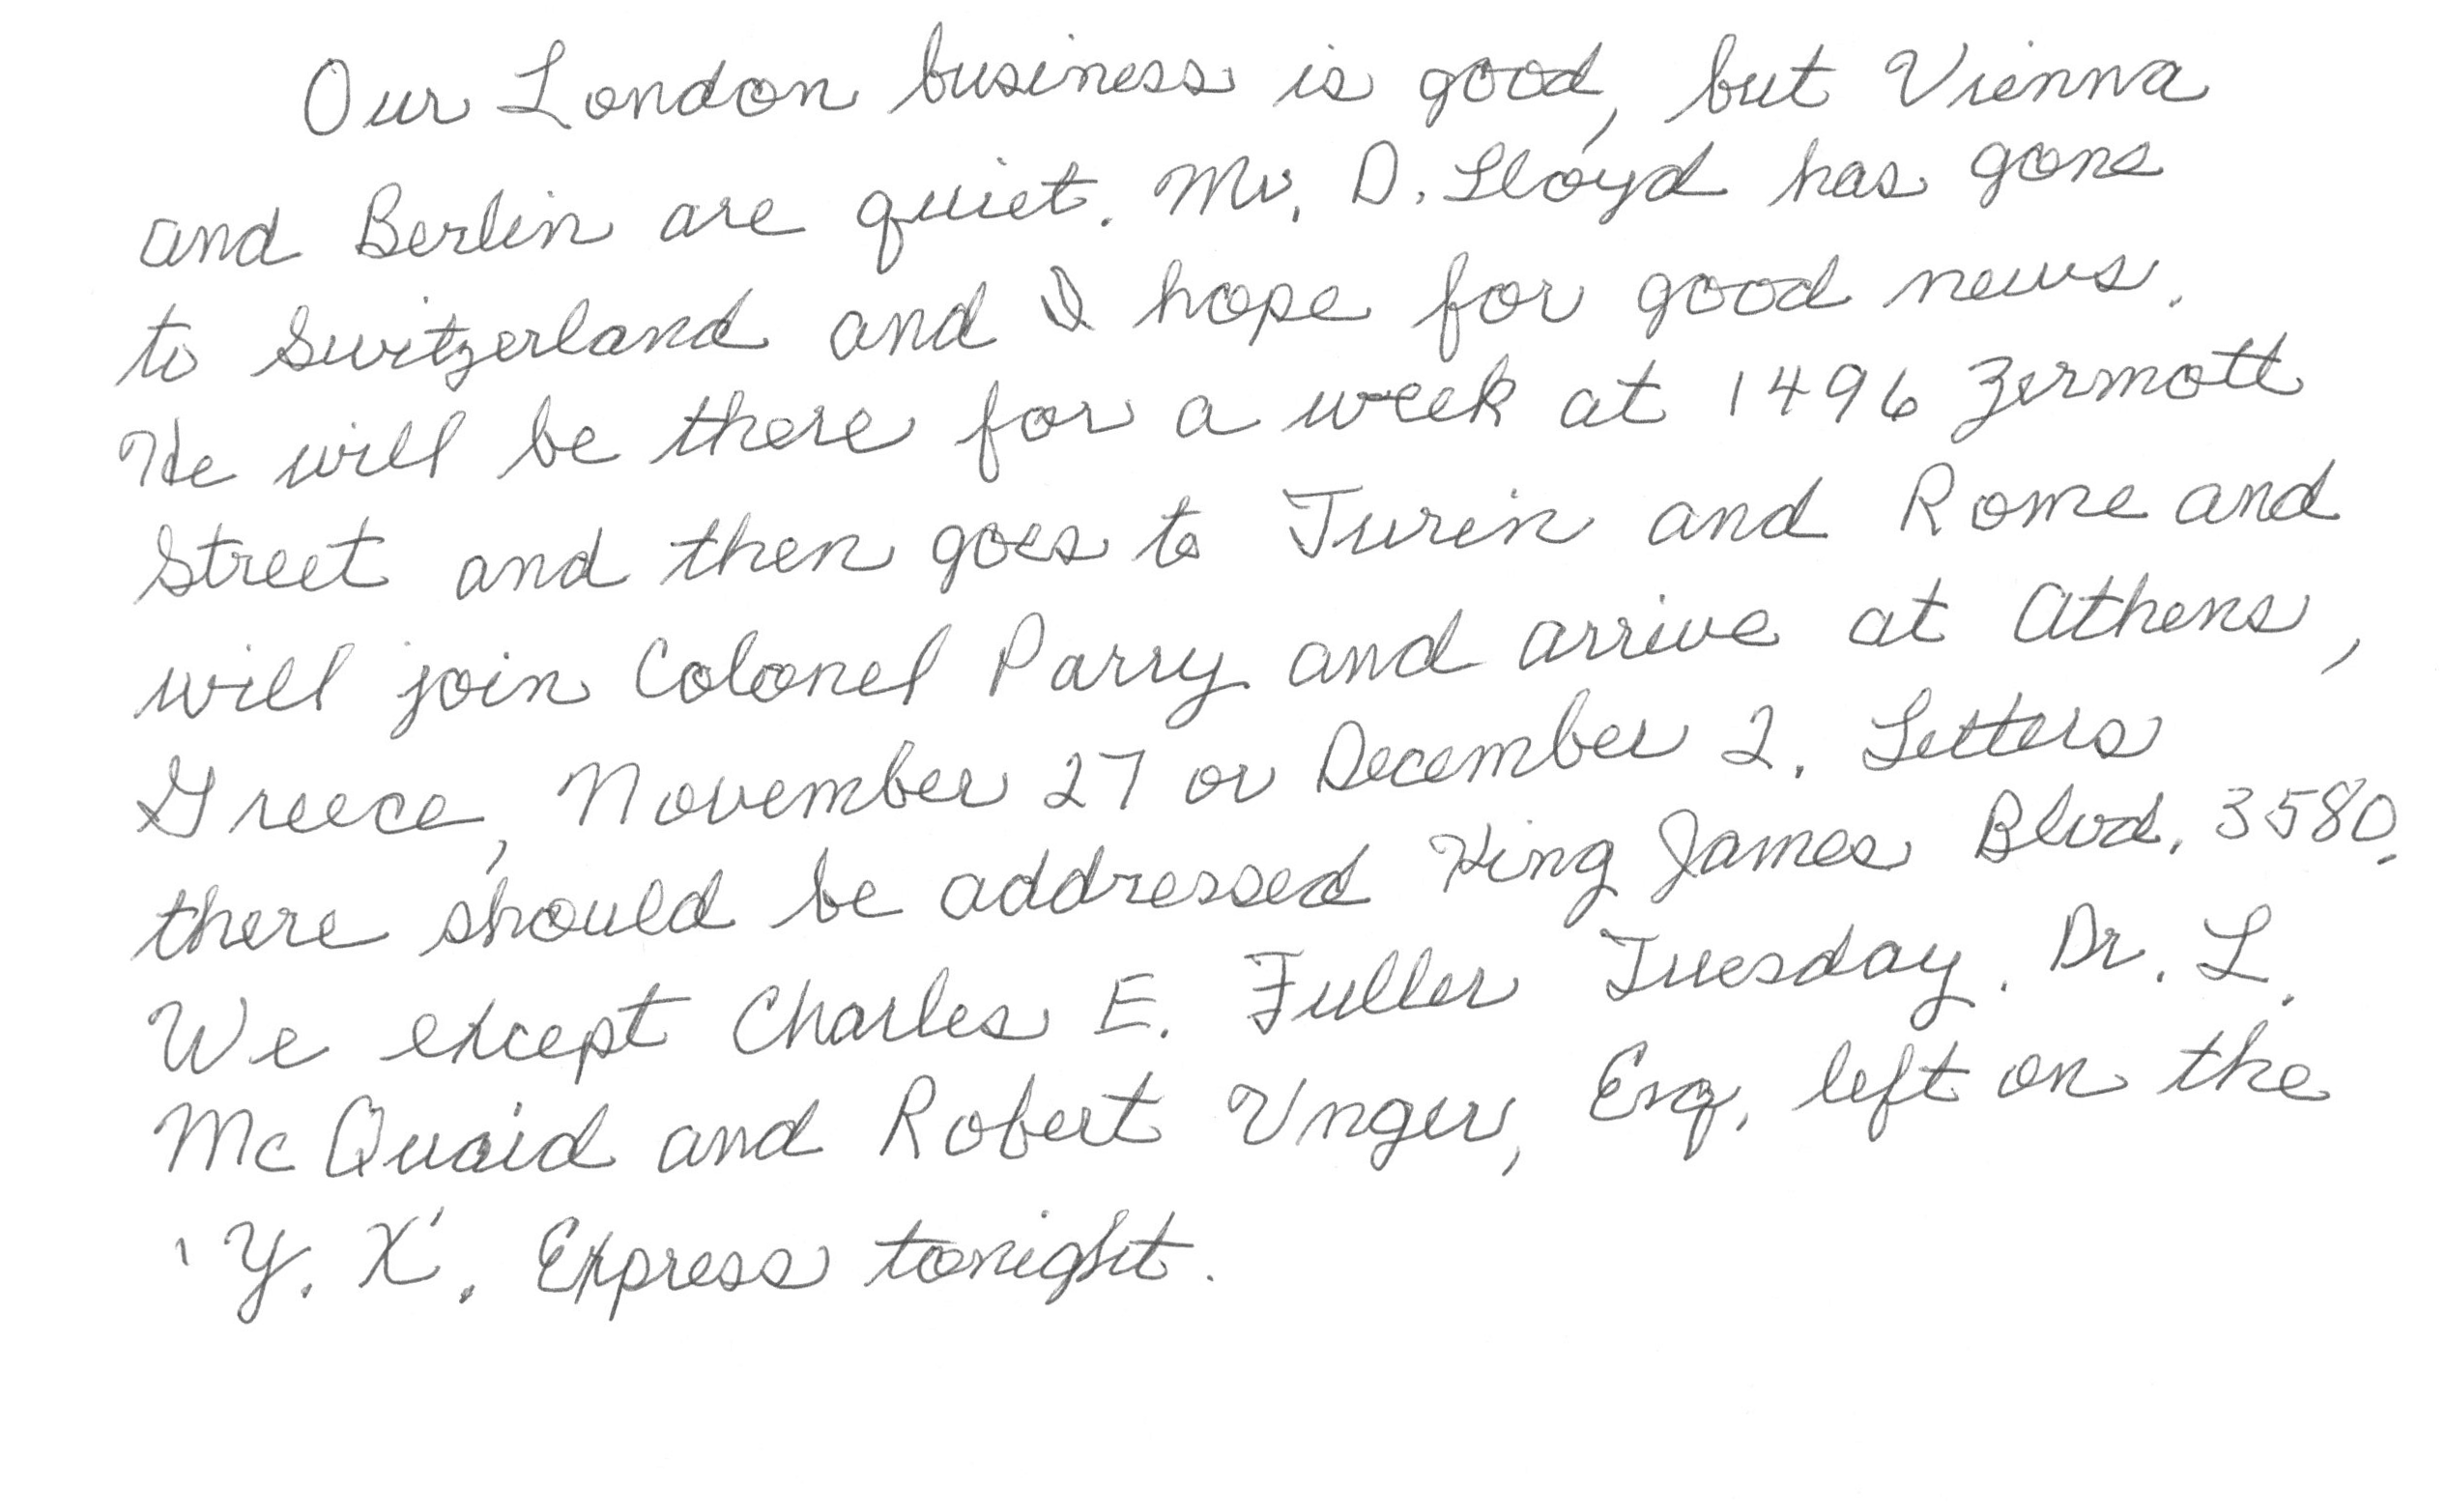 Our London business is good, but Vienna
and Berlin are quiet. Mr. D. Lloyd has gone
to Switzerland and I hope for good news.
He will be there for a week at 1496 Zermott
Street and then goes to Turin and Rome and
will join Colonel Parry and arrive at Athens,
Greece, November 27 or December 2. Letters
there should be addressed King James Blvd. 3580.
We except Charles E. Fuller Tuesday. Dr. L.
McQuaid and Robert Unger, Esq. left on the
'Y. X.' Express tonight.